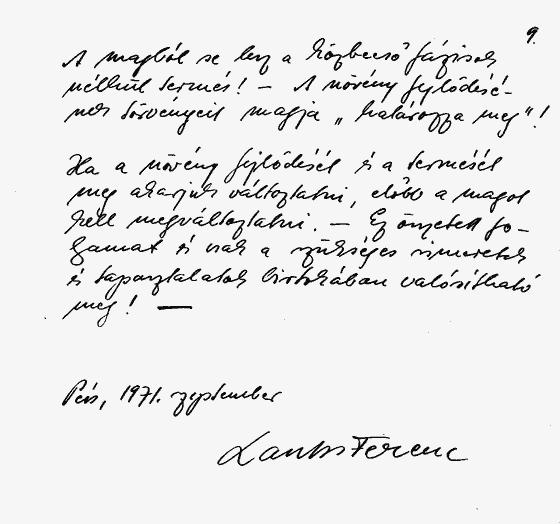 9.
A magból se lesz a közbeeső fázisok
nélkül termés! – A növény fejlődésé-
nek törvényeit magja „határozza meg"!
Ha a növény fejlődését és a termését
meg akarjuk változtatni, előbb a magot
kell megváltoztatni. – Ez összetett fo-
lyamat és csak a szükséges ismeretek
és tapasztalatok birtokában valósítható
meg! —
Pécs, 1971. szeptember
Lantos Ferenc